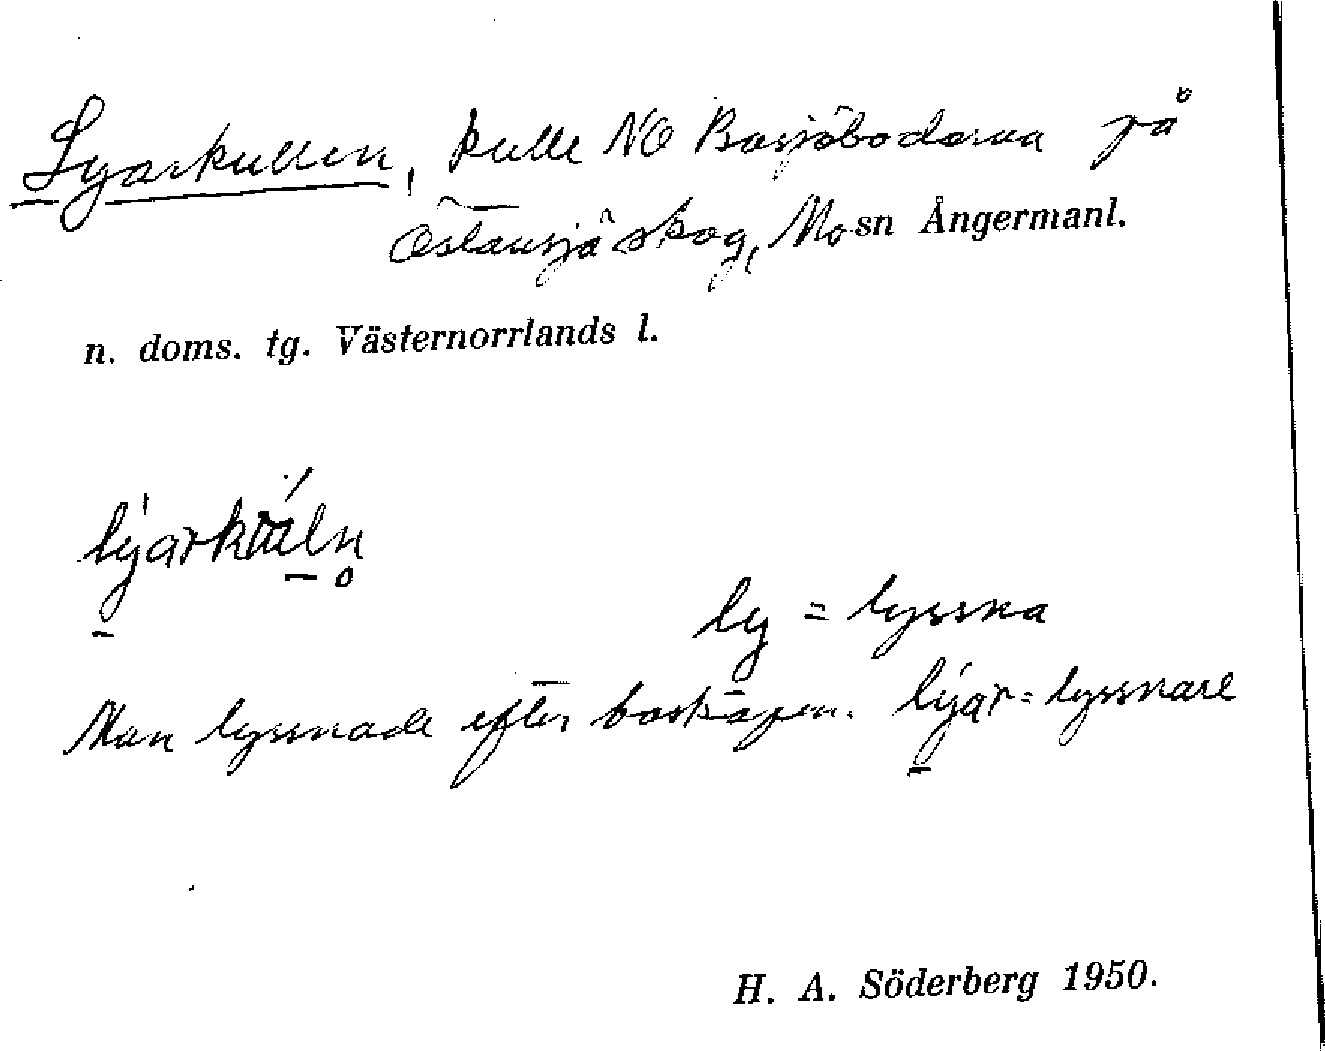 Lyarkullen, kulle NO Basjöbodarna på
Östansjö skog, Mo sn Ångermanl.
n. doms. tg. Västernorrlands l.
ly = lyssna
Man lyssnade efter boskapen. lýar = lyssnare
H. A. Söderberg 1950.